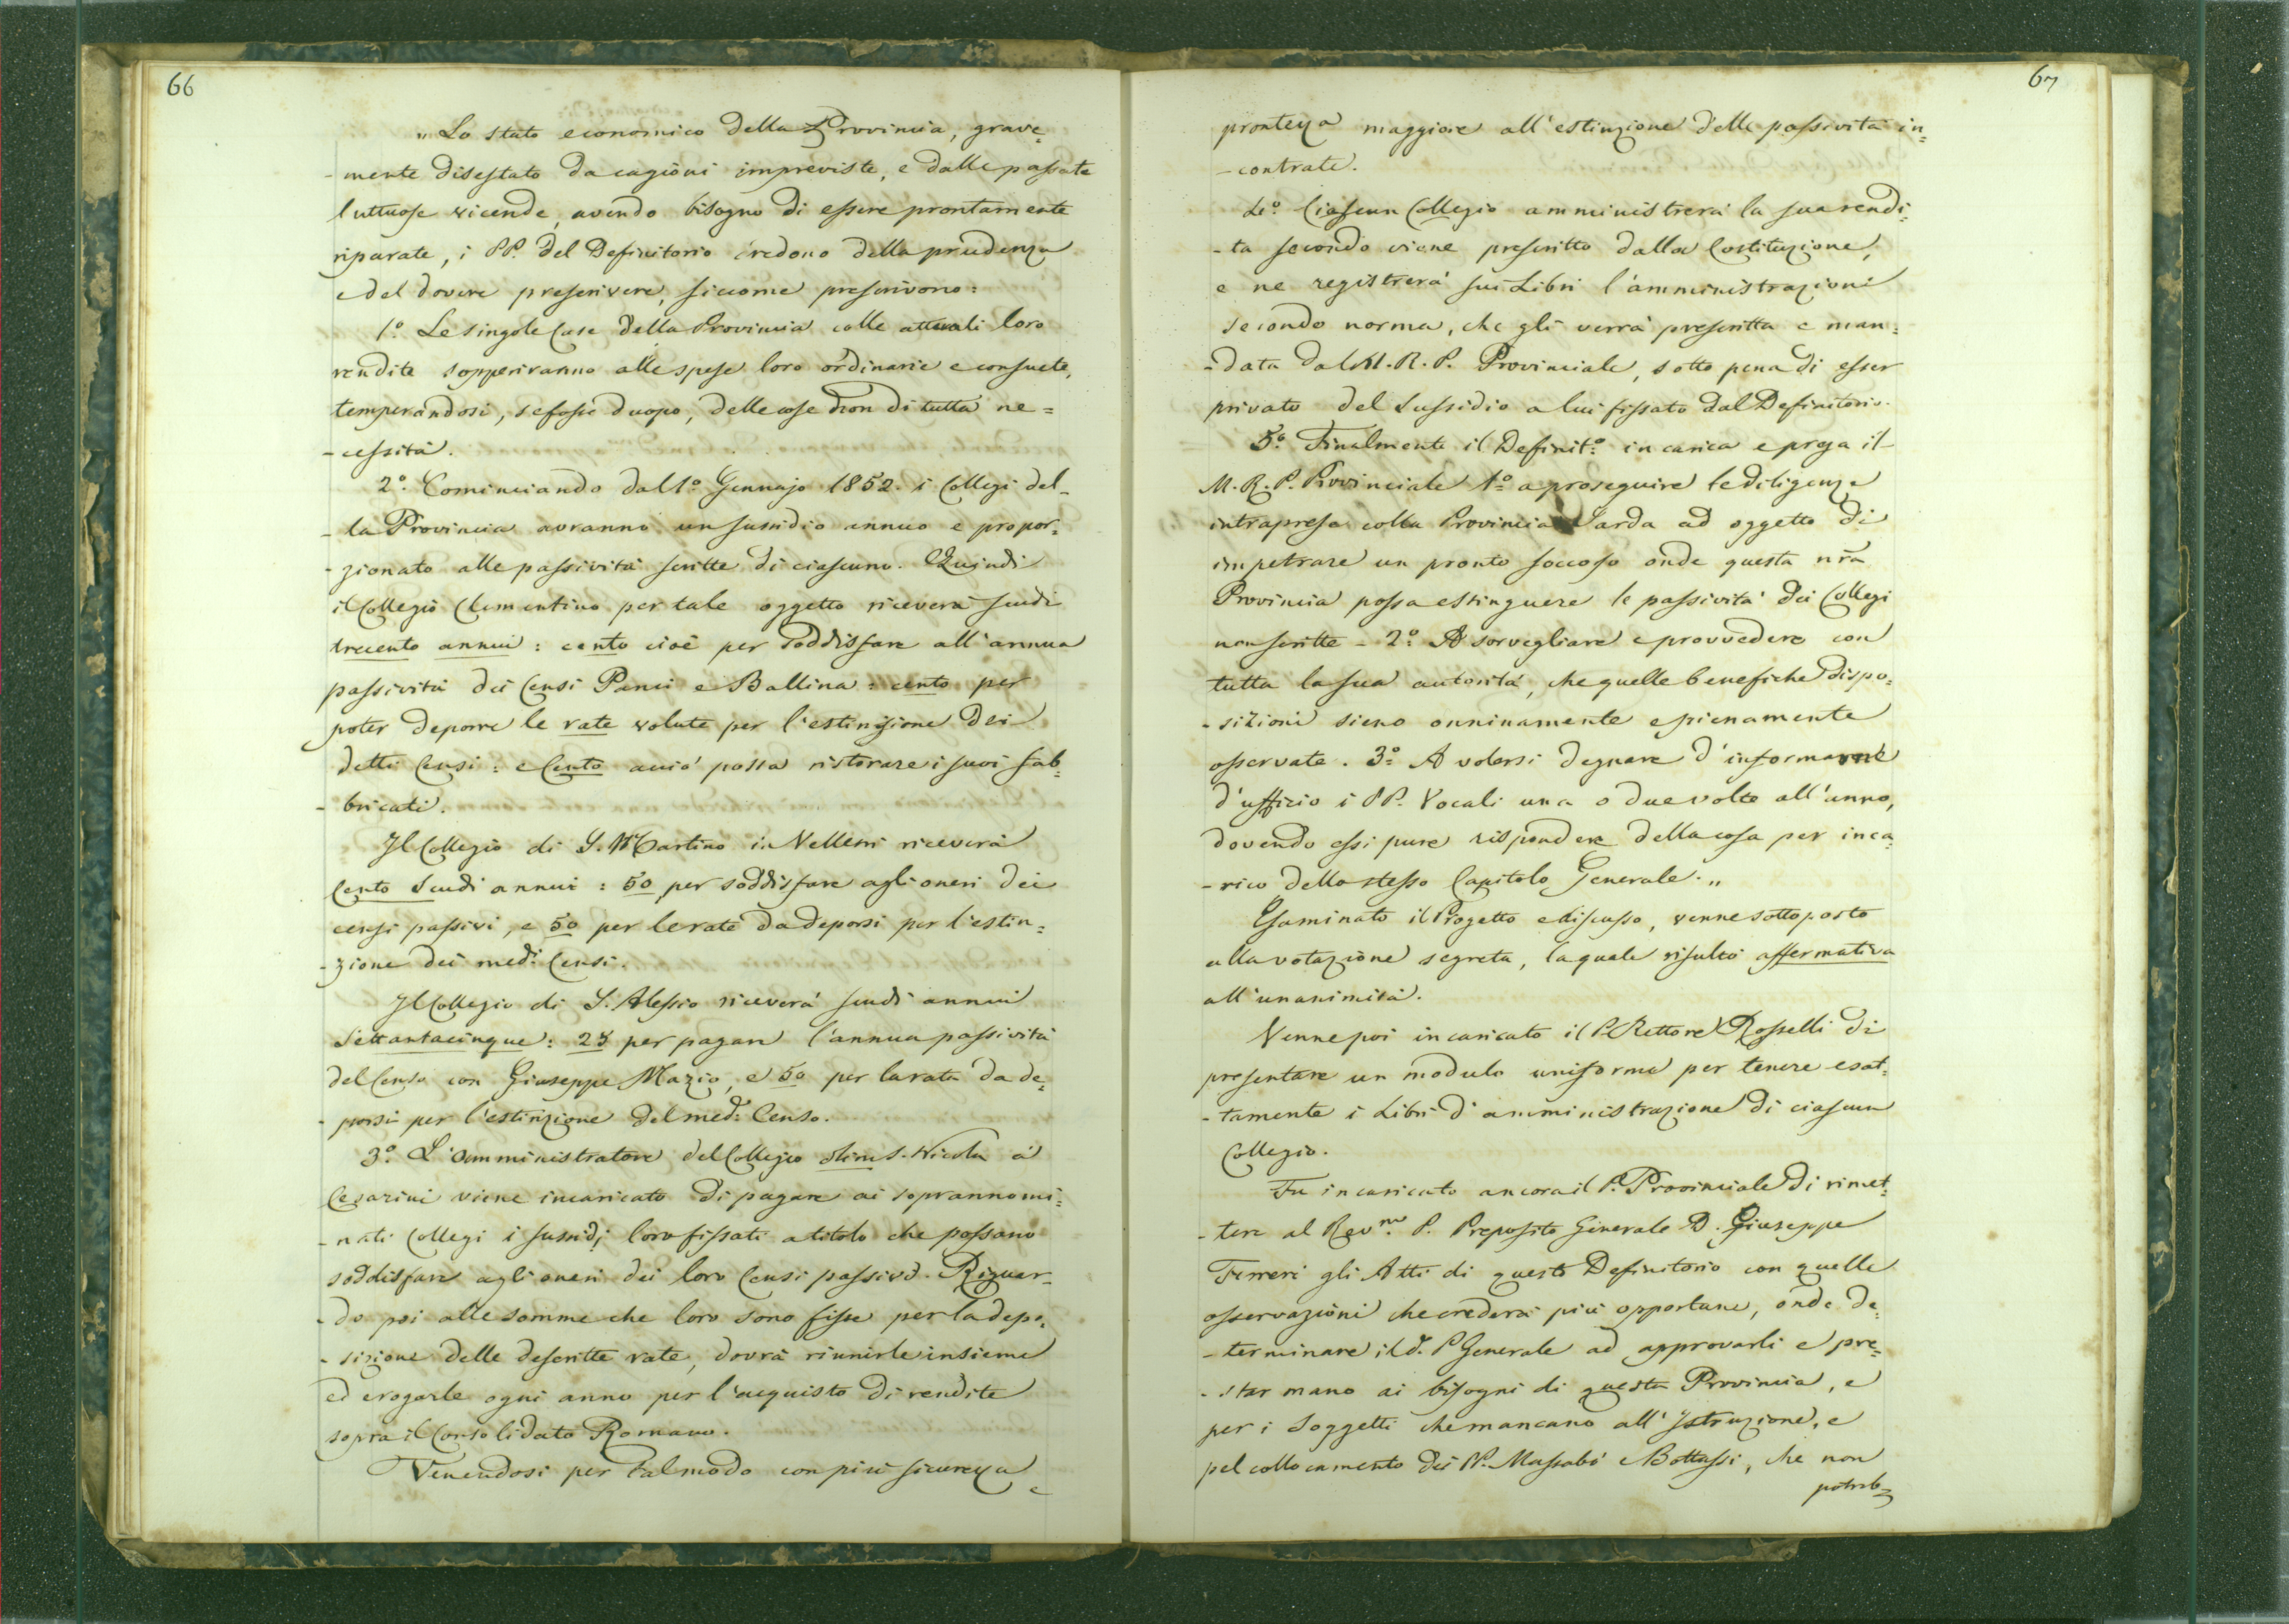 66
„ Lo stato economico della Provincia, grave=
- mente disestato da cagioni impreviste, e dalle passate
luttuose vicende, avendo bisogno di essere prontamente
riparate, i PP. del Definitorio credono della prudenza
e del dovere prescrivere, siccome prescrivono:
1.º Le singole Case della Provincia colle attuali loro
rendite sopperiranno alle spese loro ordinarie e consuete,
temperandosi, se fosse duopo, delle cose non di tutta ne=
- cessità.
2.º Cominciando dal 1.º Gennajo 1852. i Collegi del-
- la Provincia avranno un sussidio annuo e propor=
- zionato alle passività scritte di ciascuno. Quindi
il Collegio Clementino per tale oggetto riceverà scudi
trecento annui : cento cioè per soddisfare all'annua
passività dei Censi Panci e Ballina : cento per
poter deporre le rate volute per l'estinzione dei
detti Censi : e Cento acciò possa ristorare i suoi fab=
- bricati.
Il Collegio di S. Martino in Velletri riceverà
Cento Scudi annui : 50 per soddisfare agli oneri dei
censi passivi, e 50 per le rate da deporsi per l'estin=
- zione dei med.i Censi.
Il Collegio di S. Alessio riceverà scudi annui
Settantacinque : 25 per pagare l'annua passività
del Censo con Giuseppe Mazio, e 50 per la rata da de=
- porsi per l'estinzione del med.º Censo.
3.º L'amministratore del Collegio olim S. Nicola a'
Cesarini viene incaricato di pagare ai soprannomi=
- nati Collegi i sussidj loro fissati a titolo che possano
soddisfare agli oneri dei loro Censi passivi. Riguar-
- do poi alle somme che loro sono fisse per la depo=
- sizione delle descritte rate, dovrà riunirle insieme
ed erogarle ogni anno per l'acquisto di rendite
sopra il Consolidato Romano.
Venendosi per tal modo con più sicurezza e
67
prontezza maggiore all'estinzione delle passività in=
- contrate.
4.º Ciascun Collegio amministrerà la sua rendi=
- ta secondo viene prescritto dalla Costituzione,
e ne registrerà sui Libri l'amministrazione
secondo norma, che gli verrà prescritta e man=
- data dal M. R. P. Provinciale, sotto pena di esser
privato del Sussidio a lui fissato dal Definitorio.
5.º Finalmente il Definit.º incarica e prega il
M. R. P. Provinciale 1.º a proseguire le diligenze
intraprese colla Provincia Sarda ad oggetto di
impetrare un pronto soccorso onde questa nr̃a
Provincia possa estinguere le passività dei Collegi
non scritte - 2.º A sorvegliare e provvedere con
tutta la sua autorità, che quelle benefiche dispo=
- sizioni sieno onninamente e pienamente
osservate. 3.º A volersi degnare d'informarne
d'ufficio i PP. Vocali una o due volte all'anno,
dovendo essi pure rispondere della cosa per inca=
- rico dello stesso Capitolo Generale. „
Esaminato il Progetto e discusso, venne sottoposto
alla votazione segreta, la quale risultò affermativa
all'unanimità.
Venne poi incaricato il P. Rettore Rosselli di
presentare un modulo uniforme per tenere esat=
- tamente i Libri d'amministrazione di ciascun
Collegio.
Fu incaricato ancora il P. Provinciale di rimet=
- tere al Rev.mo P. Preposito Generale D. Giuseppe
Ferreri gli Atti di questo Definitorio con quelle
osservazioni che crederà più opportune, onde de=
- terminare il d.º P. Generale ad approvarli e pre=
- star mano ai bisogni di questa Provincia, e
per i Soggetti che mancano all'Istruzione, e
pel collocamento dei PP. Massabò e Bottassi, che non
potreb=